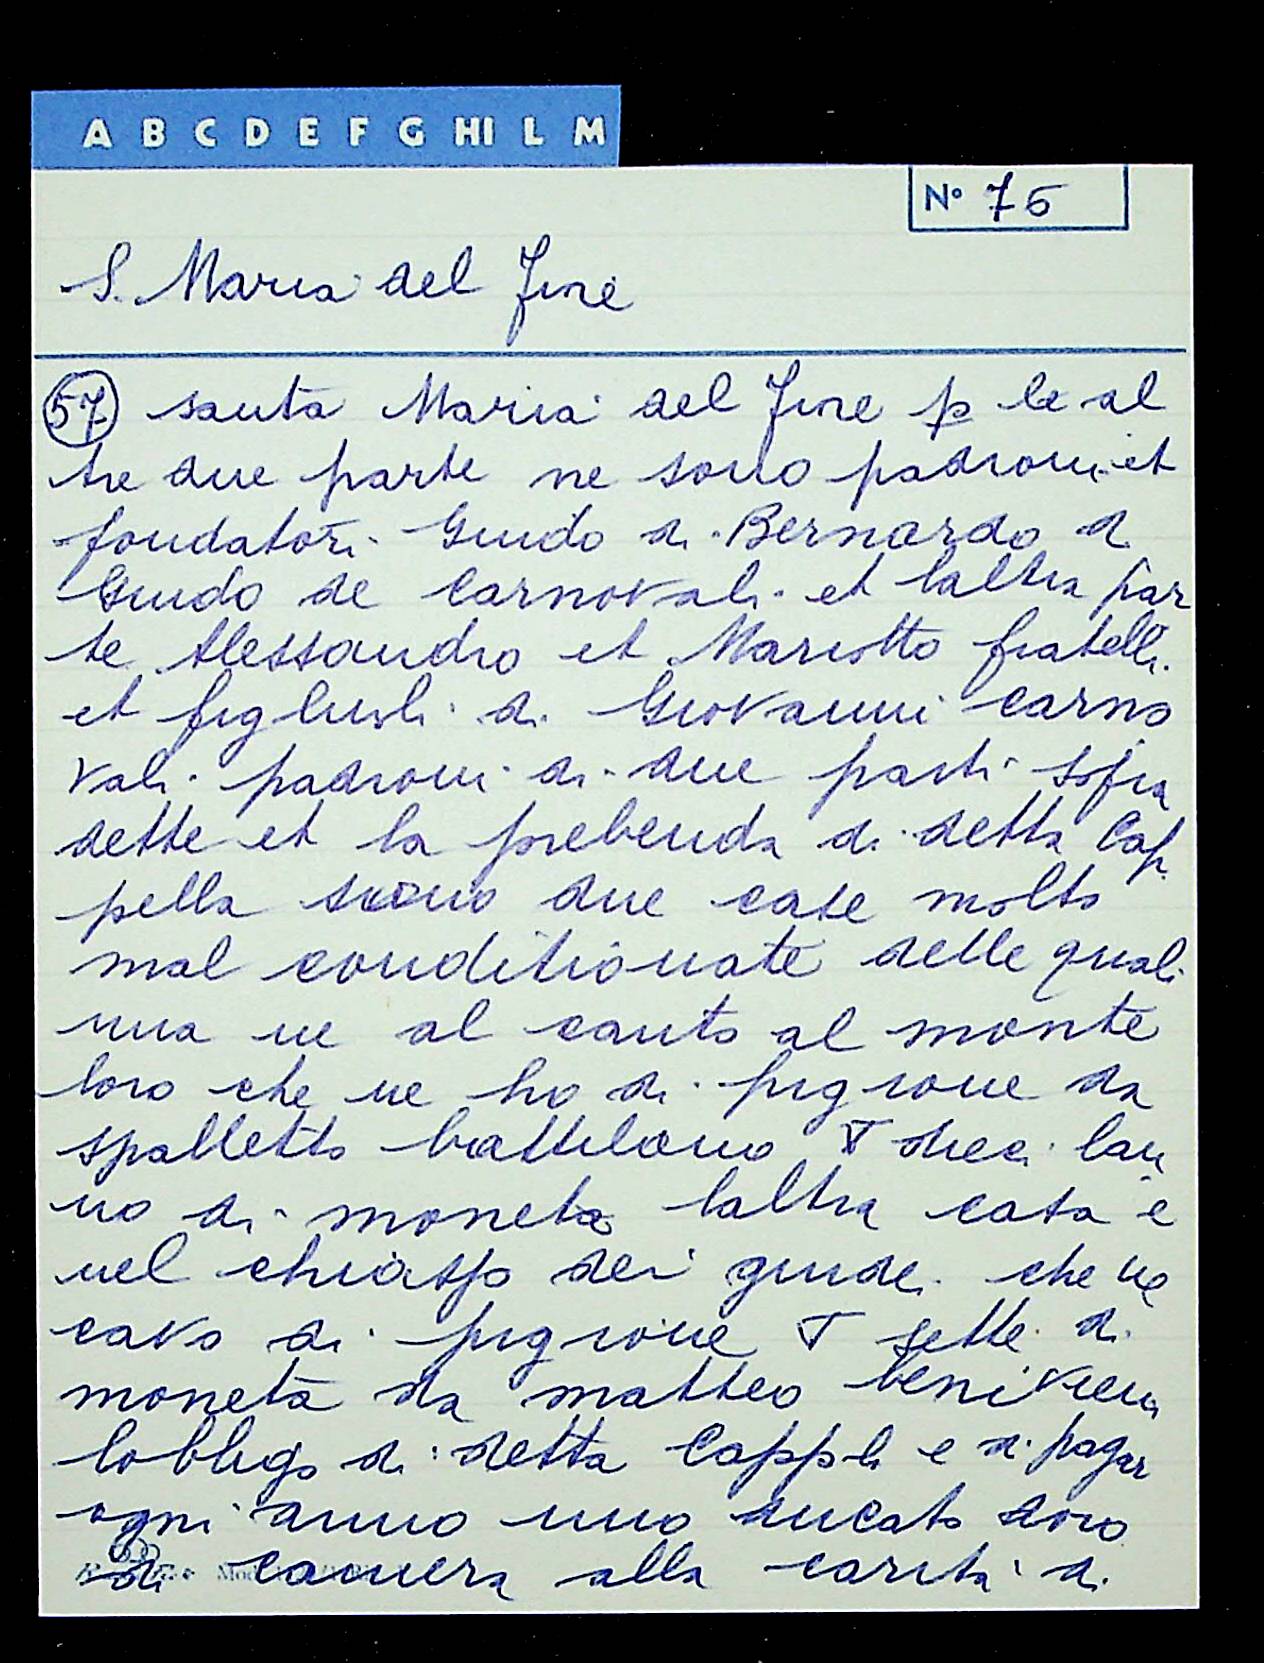 A B C D E F G HI L M
Nº 75
S. Maria del fine
57 santa Maria del fine p le al
tre due parte ne sono padroni et
fondatori Guido di Bernardo di
Guido de Carnovali et laltra par
te Alessandro et Mariotto fratelli
et figluoli di Giovanni Carno
vali padroni di due parti sopra
dette et la prebenda di detta Cap
pella sono due case molto
mal conditionate delle quali
una ne al canto al monte
loro che ne ho di pigione da
spalletto battilano ∇ dieci lan
no di moneta laltra casa è
nel chiasso dei giudei che ne
cavo di pigione ∇ sette di
moneta da matteo
lobbligo di detta Capp.li e di pagar
ogni anno uno ducato doro
di camera alla carità di